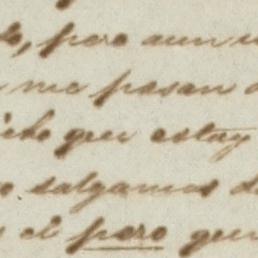 , pero aun
me pasan
que estoy
salgamos
el pero que